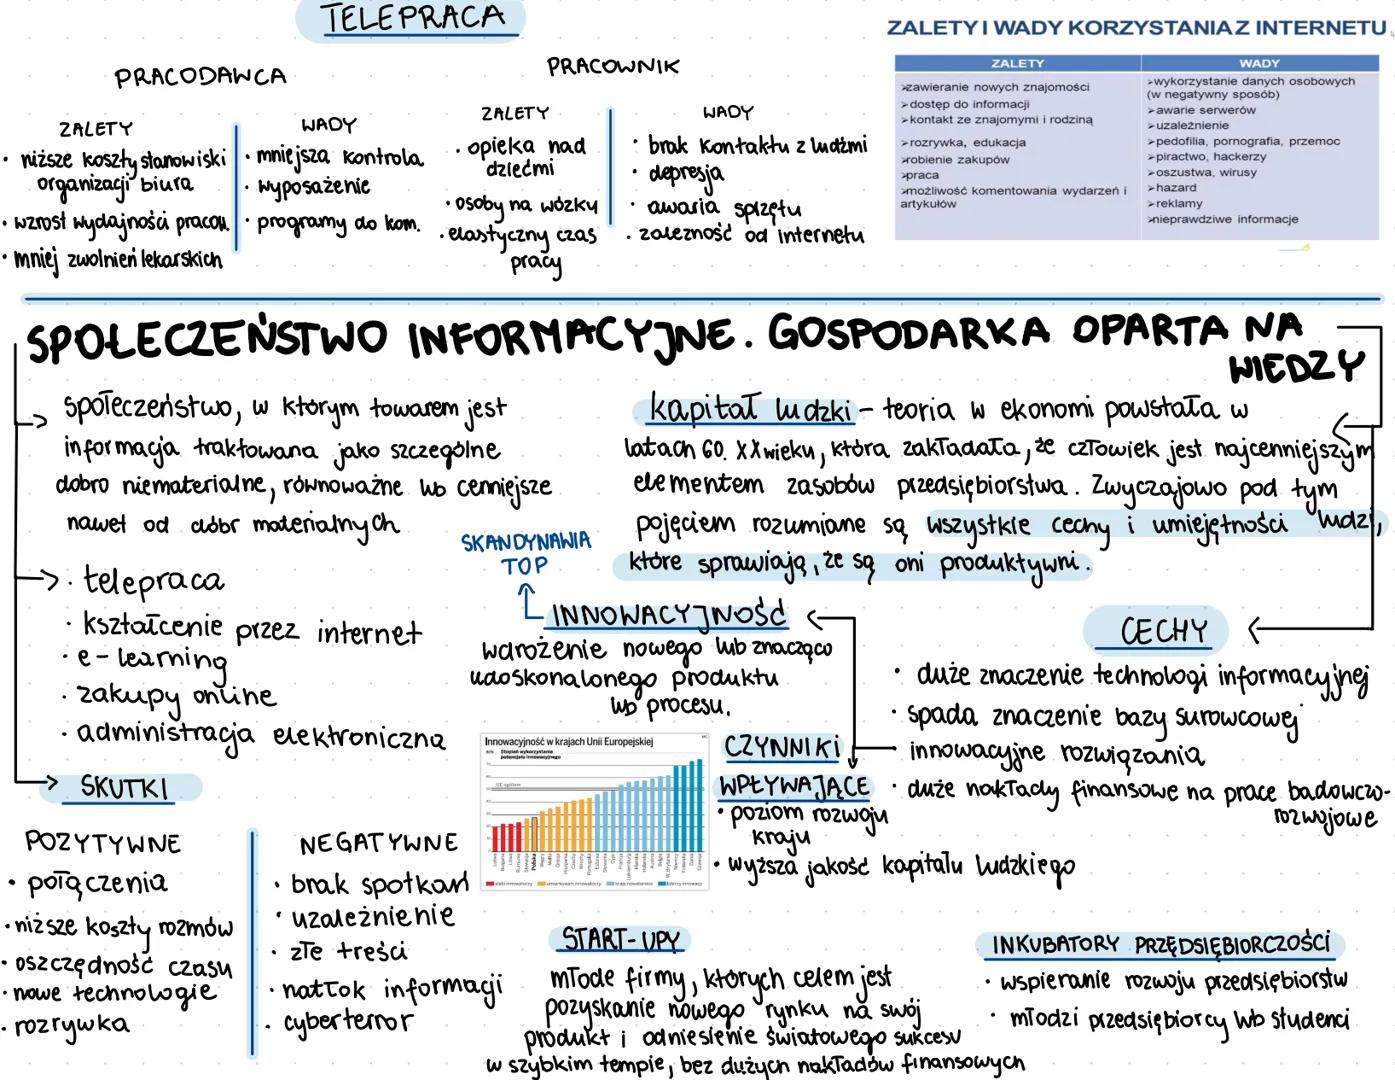 TELEPRACA
PRACODAWCA
ZALETY
• niższe koszty stanowiski
organizacji biura
• wzrost wydajności pracow.
• mniej zwolnień lekarskich
WADY
• mniejsza kontrola
• wyposażenie
• programy do kom.
PRACOWNIK
ZALETY
• opieka nad
dziećmi
• osoby na wózku
• elastyczny czas
pracy
WADY
• brak kontaktu z ludźmi
• depresja
• awaria sprzętu
• zależność od internetu
ZALETY I WADY KORZYSTANIA Z INTERNETU
ZALETY
➢zawieranie nowych znajomości
➢dostęp do informacji
➢kontakt ze znajomymi i rodziną
➢rozrywka, edukacja
➢robienie zakupów
➢praca
➢możliwość komentowania wydarzeń i
artykułów
WADY
➢wykorzystanie danych osobowych
(w negatywny sposób)
➢awarie serwerów
➢uzależnienie
➢pedofilia, pornografia, przemoc
➢piractwo, hackerzy
➢oszustwa, wirusy
➢hazard
➢reklamy
➢nieprawdziwe informacje
SPOŁECZEŃSTWO INFORMACYJNE. GOSPODARKA OPARTA NA
WIEDZY
społeczeństwo, w którym towarem jest
informacja traktowana jako szczególne
dobro niematerialne, równoważne lub cenniejsze
nawet od dóbr materialnych
• telepraca
• kształcenie przez internet
• e-learning
• zakupy online
• administracja elektroniczna
kapitał ludzki - teoria w ekonomi powstała w
latach 60. XX wieku, która zakładała, że człowiek jest najcenniejszym
elementem zasobów przedsiębiorstwa. Zwyczajowo pod tym
pojęciem rozumiane są wszystkie cechy i umiejętności ludzi,
które sprawiają, że są oni produktywni.
SKANDYNAWIA
TOP
INNOWACYJNOŚĆ
wdrożenie nowego lub znacząco
udoskonalonego produktu
lub procesu.
CECHY
• duże znaczenie technologi informacyjnej
• spada znaczenie bazy surowcowej
• innowacyjne rozwiązania
• duże nakłady finansowe na prace badowczo-
rozwojowe
CZYNNIKI
WPŁYWAJĄCE
• poziom rozwoju
kraju
• wyższa jakość kapitału ludzkiego
Innowacyjność w krajach Unii Europejskiej
Stopień wykorzystania
potencjału innowacyjnego
UE ogółem
Polska
SKUTKI
POZYTYWNE
• połączenia
• niższe koszty rozmów
• oszczędność czasu
• nowe technologie
• rozrywka
NEGATYWNE
• brak spotkań
• uzależnienie
• złe treści
• natłok informacji
• cyberterror
START-UPY
młode firmy, których celem jest
pozyskanie nowego rynku na swój
produkt i odniesienie światowego sukcesu
w szybkim tempie, bez dużych nakładów finansowych
INKUBATORY PRZĘDSIĘBIORCZOŚCI
• wspieranie rozwoju przedsiębiorstw
• młodzi przedsiębiorcy lub studenci